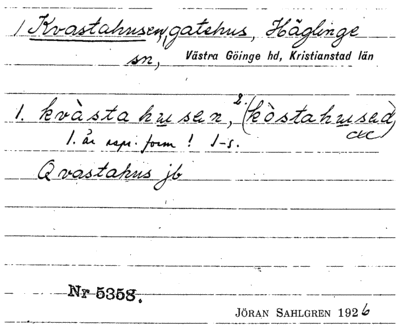 1 Kvastahusen, gatehus, Häglinge
sn, Västra Göinge hd, Kristianstad län
1. kvàstahusen, 2. (kòstahused)
1. är repr. form! J-s.
Qvastahus jb
Nr 5358.
JÖRAN SAHLGREN 1926